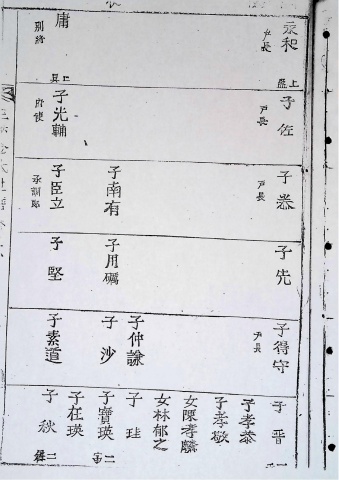 永和
戶長
上
庸
別將
子佐
戶長
子光輔
府使
子恭
戶長
子南有
子臣立
子先
子用礪
子堅
子得守
戶長
子仲謙
子沙
子素道
子晋
子孝恭
子孝敬
女陳孝麟
女林郁之
子珪
子寶瑛
子在瑛
子秋
二
二